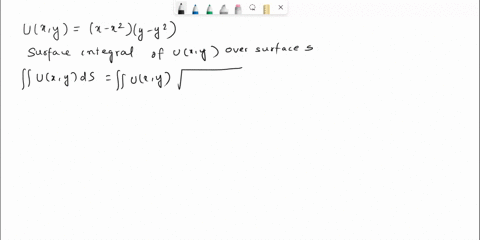 U(x,y) = (x-x²)(y-y²)
Surface integral of U(x,y) over surface s
∬ U(x,y) dS = ∬ U(x,y) √